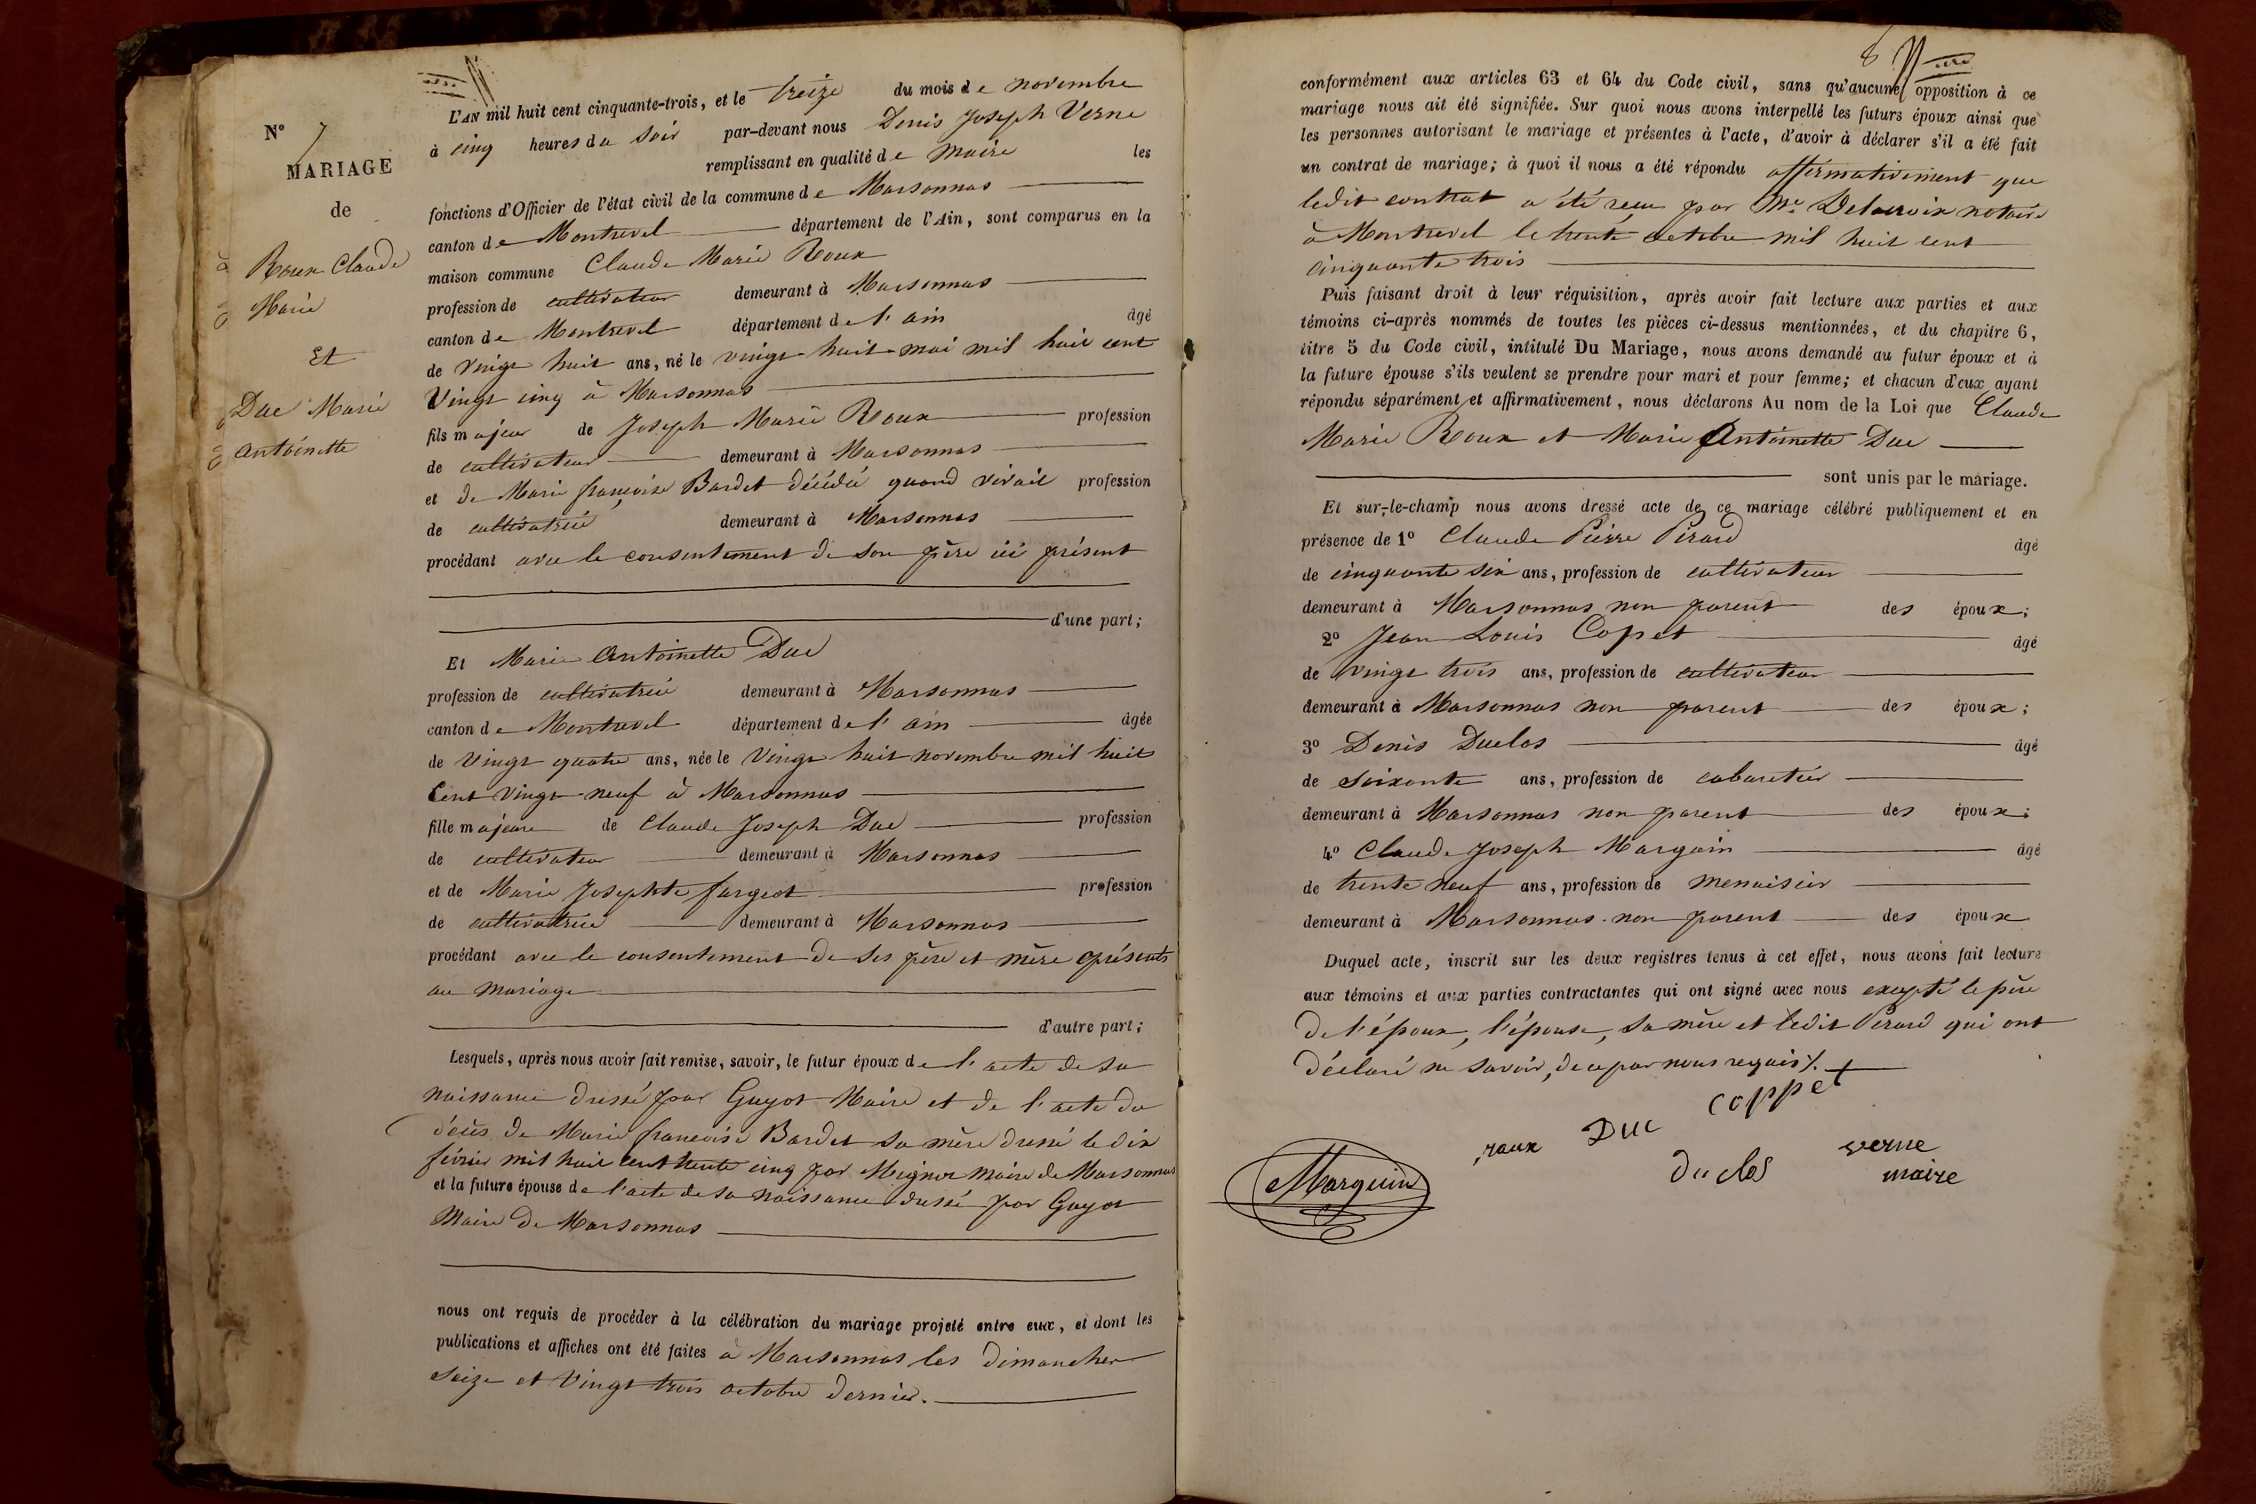 N° 7
MARIAGE
de
Roux Claude
Marie
Et
Duc Marie
Antoinette
L'AN mil huit cent cinquante-trois, et le treize du mois de novembre
à cinq heures du soir par-devant nous Denis Joseph Verne
remplissant en qualité de maire les
fonctions d'Officier de l'état civil de la commune de Marsonnas
canton de Montrevel département de l'Ain, sont comparus en la
maison commune Claude Marie Roux
profession de cultivateur demeurant à Marsonnas
canton de Montrevel département de l'ain âgé
de vingt huit ans, né le vingt huit mai mil huit cent
vingt cinq à Marsonnas
fils majeur de Joseph Marie Roux profession
de cultivateur demeurant à Marsonnas
et de Marie françoise Bardet décédée quand vivait profession
de cultivatrice demeurant à Marsonnas
procédant avec le consentement de son père ici présent
d'une part;
Et Marie Antoinette Duc
profession de cultivatrice demeurant à Marsonnas
canton de Montrevel département de l'ain âgée
de vingt quatre ans, née le vingt huit novembre mil huit
cent vingt neuf à Marsonnas
fille majeure de Claude Joseph Duc profession
de cultivateur demeurant à Marsonnas
et de Marie Josephte fargeot profession
de cultivatrice demeurant à Marsonnas
procédant avec le consentement de ses père et mère présents
au mariage
d'autre part;
Lesquels, après nous avoir fait remise, savoir, le futur époux de l'acte de sa
naissance dressé par Guyot Maire et de l'acte du
décès de Marie françoise Bardet sa mère dressé le dix
février mil huit cent trente cinq par Mignot maire de Marsonnas
et la future épouse de l'acte de sa naissance dressé par Guyot
Maire de Marsonnas
nous ont requis de procéder à la célébration du mariage projeté entre eux, et dont les
publications et affiches ont été faites à Marsonnas les dimanches
seize et vingt trois octobre dernier.
conformément aux articles 63 et 64 du Code civil, sans qu'aucune opposition à ce
mariage nous ait été signifiée. Sur quoi nous avons interpellé les futurs époux ainsi que
les personnes autorisant le mariage et présentes à l'acte, d'avoir à déclarer s'il a été fait
un contrat de mariage; à quoi il nous a été répondu affirmativement que
ledit contrat a été reçu par Me Delacroix notaire
à Montrevel le trente octobre mil huit cent
cinquante trois
Puis faisant droit à leur réquisition, après avoir fait lecture aux parties et aux
témoins ci-après nommés de toutes les pièces ci-dessus mentionnées, et du chapitre 6,
titre 5 du Code civil, intitulé Du Mariage, nous avons demandé au futur époux et à
la future épouse s'ils veulent se prendre pour mari et pour femme; et chacun d'eux ayant
répondu séparément et affirmativement, nous déclarons Au nom de la Loi que Claude
Marie Roux et Marie Antoinette Duc
sont unis par le mariage.
Et sur-le-champ nous avons dressé acte de ce mariage célébré publiquement et en
présence de 1° Claude Pierre Pirard âgé
de cinquante six ans, profession de cultivateur
demeurant à Marsonnas non parent des époux;
2° Jean Louis Copet âgé
de vingt trois ans, profession de cultivateur
demeurant à Marsonnas non parent des époux;
3° Denis Duclos âgé
de soixante ans, profession de cabaretier
demeurant à Marsonnas non parent des époux;
4° Claude Joseph Marguin âgé
de trente neuf ans, profession de menuisier
demeurant à Marsonnas non parent des époux
Duquel acte, inscrit sur les deux registres tenus à cet effet, nous avons fait lecture
aux témoins et aux parties contractantes qui ont signé avec nous excepté le père
de l'époux, l'épouse, sa mère et ledit Pirard qui ont
déclaré ne savoir, de ce par nous requis /.
roux Duc coppet
Marguin duclos verne
maire